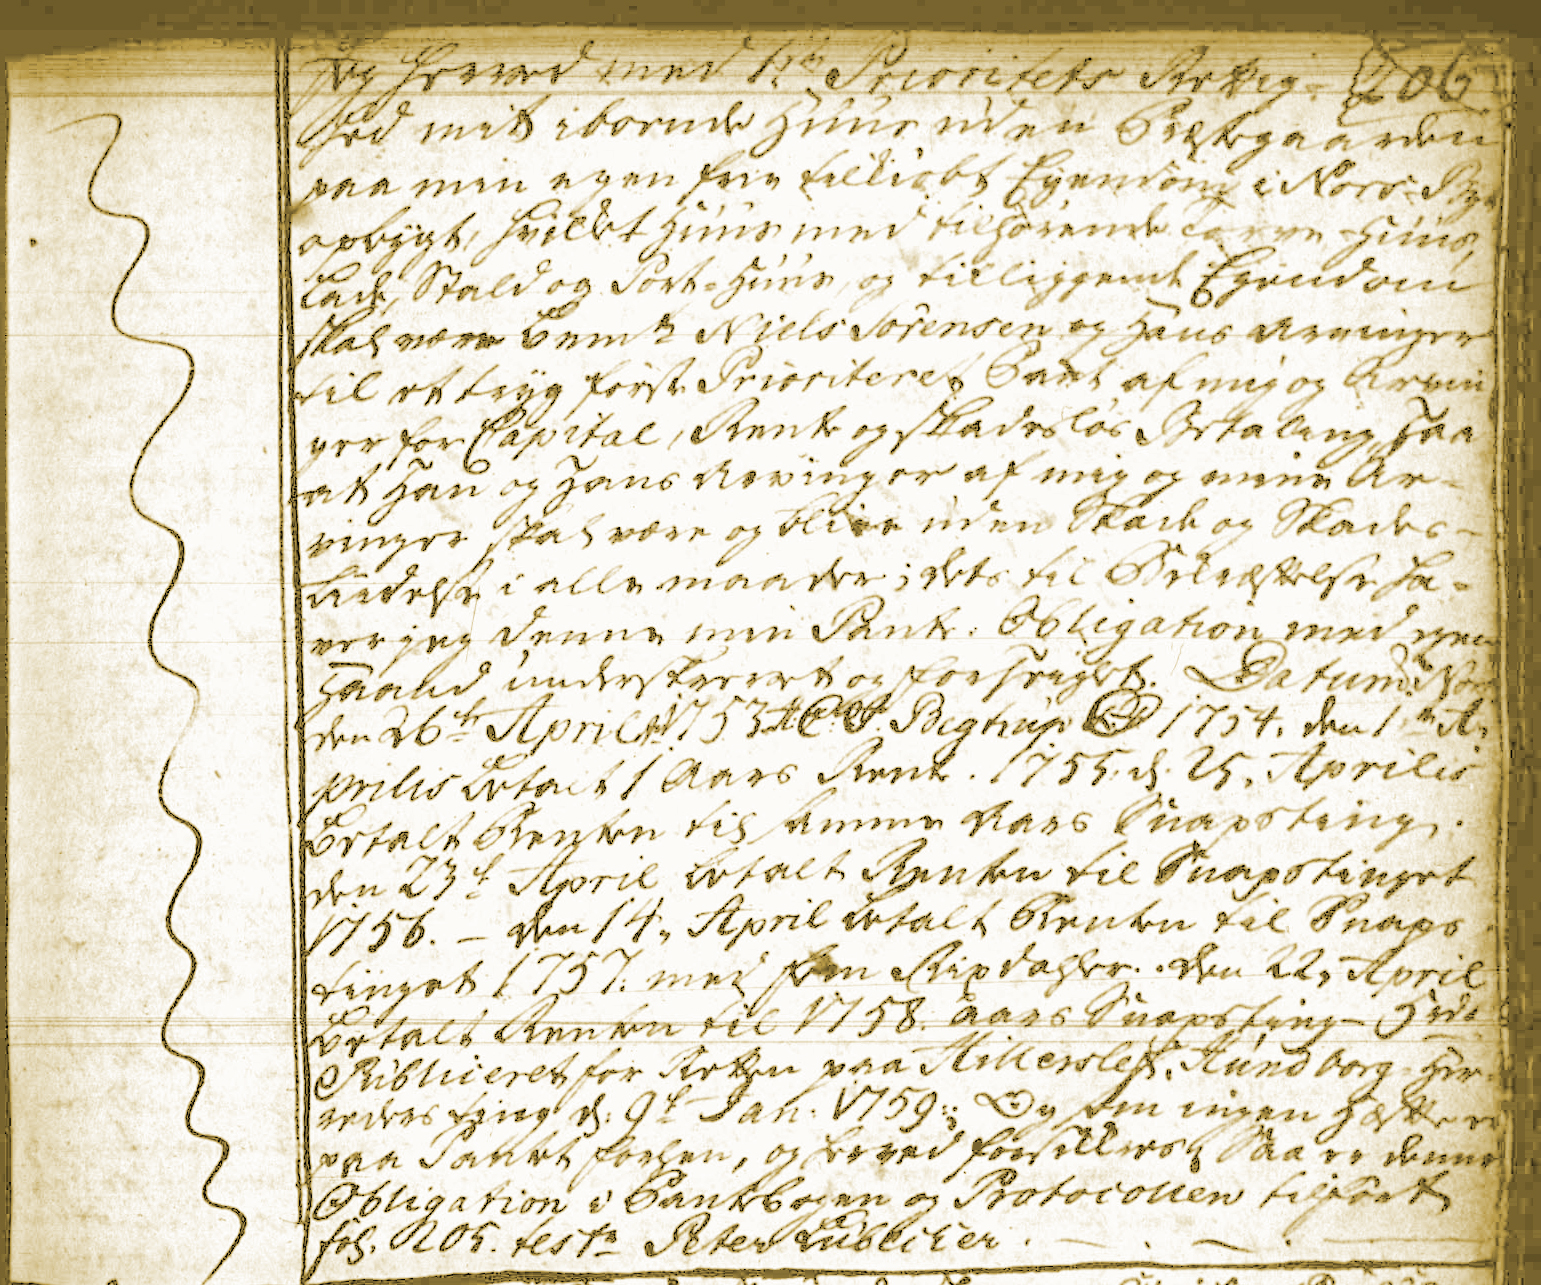 jeg herved med 1te Prioritets Rettig- 206
hed mit iboende Huus uden Præstegaarden
paa min egen frie tilkiøbt Eyendom i Nors Bye
opbygt, hvilket Huus med tilhørende Torve-Huus,
Lade, Stald og Port-Huus, og tilliggende Eyendom
skal være bemte Niels Sørensen og Hans Arvinger
til et tryg første Prioriteret Pant af mig og Arvin
ger for Capital, Rente og skadesløs Betaling, saa
at Han og Hans Arvinger af mig og mine Ar-
vinger skal være og blive uden Skade og Skades-
lidelse i alle maader; dets til Bekræftelse ha-
ver jeg denne min Pante-Obligation med egen
Haand underskrevet og forseiglet. Datum Nors
den 26de April 1753 C. Bigtrup 1754. den 1te A-
prilis betalt 1 Aars Rente. 1755. d. 25. Aprilis
betalt Renten til samme Aars Snapsting.
den 23de April betalt Renten til Snapstinget
1756. – den 14. April betalt Renten til Snaps
tinget 1757. med fem Rixdaler. den 22. April
betalt Renten til 1758. aars Snapsting –
Publiceret for Retten paa Hillerslef, Hundborg-Her-
reders ting d. 9de Jan. 1759; Og som ingen Hæftelse
paa Pantet forhen, og herved forskrives, saa er denne
Obligation i Pantebogen og Protocollen tilført
fol. 205. teste Peter Lübbicker.